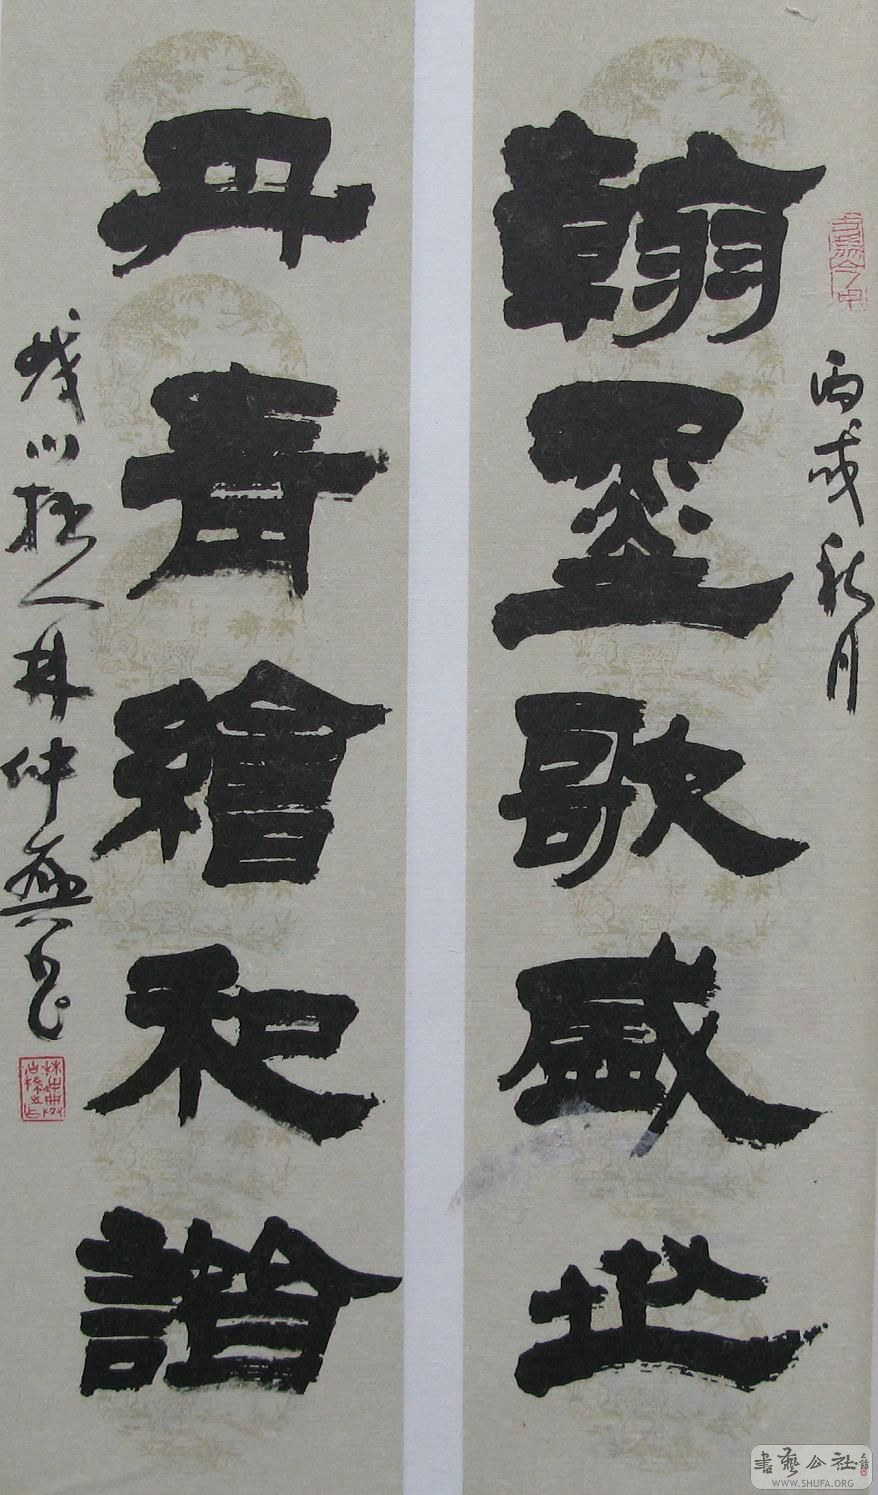 丙戌秋月
翰墨歌盛世
丹青繪和諧
林仲興
書藝公社
WWW.SHUFA.ORG